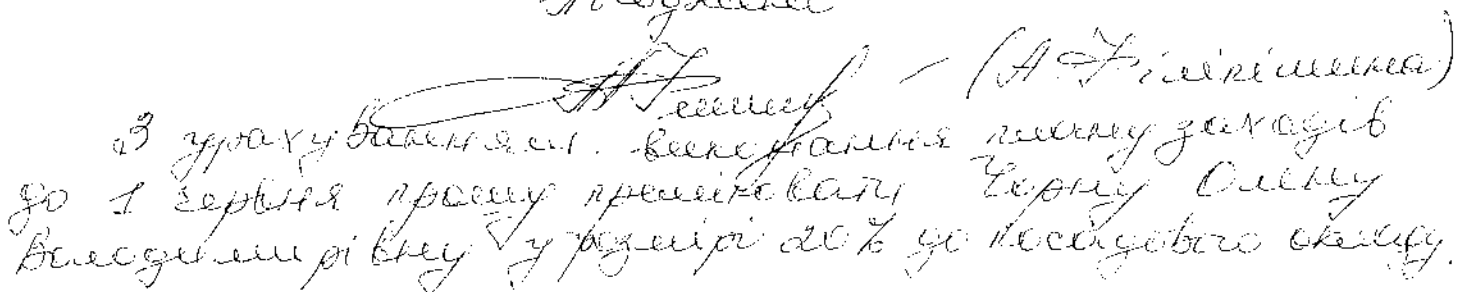 (А Філікішина)
З урахуванням виконання плану заходів
до 1 червня прошу преміювати Чорну Олену
Володимирівну у розмірі 20% до посадового окладу.